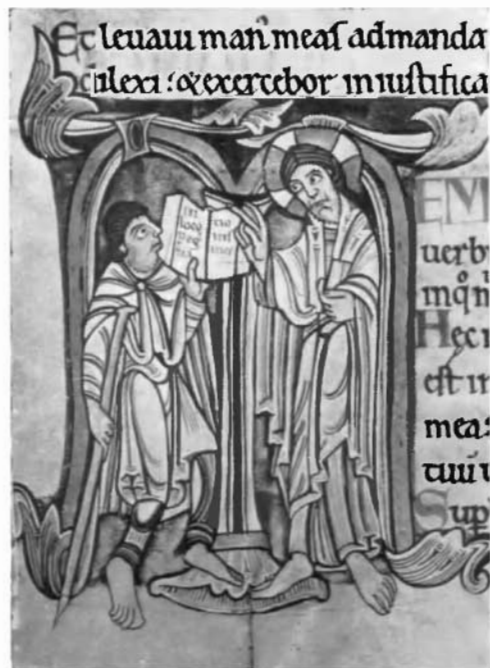 Et leuaui man̄ meaſ admanda
dilexi : & exercebor in iuſtifica
in
loco
EM
uerb
mqͦn
Hec
eſt in
mea:
Sup